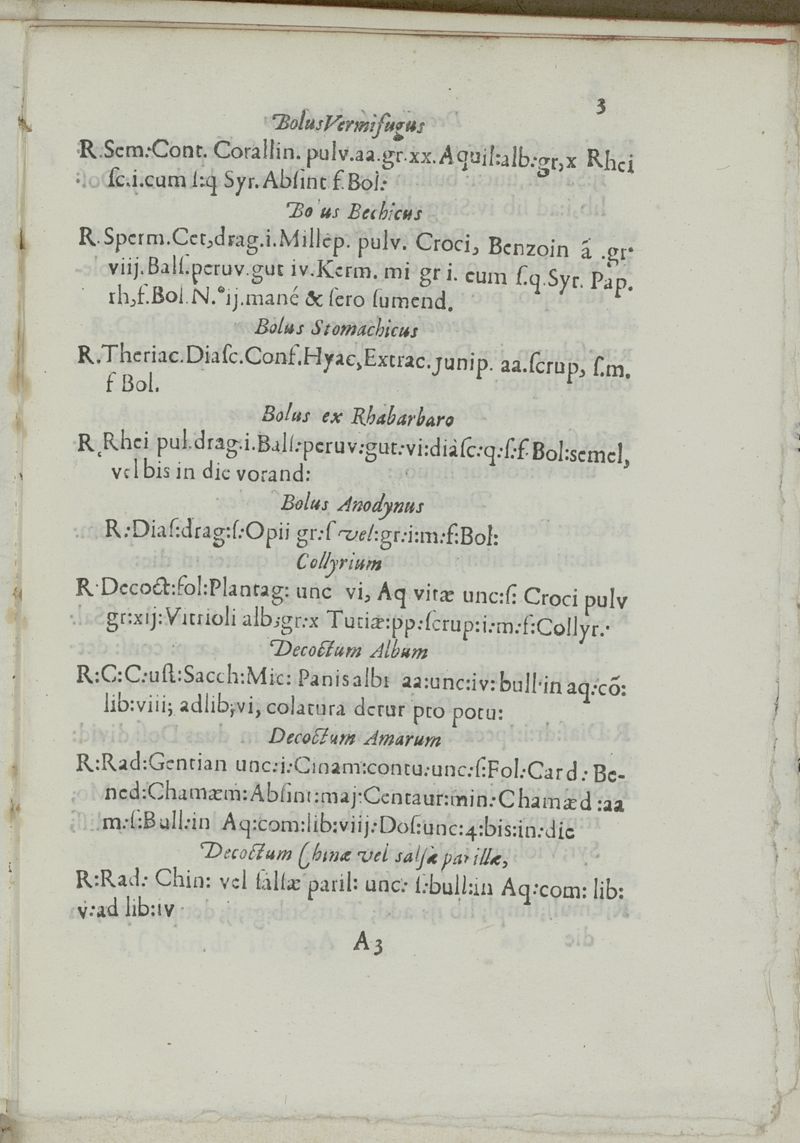 3
Bolus Vermifugus
R. Sem: Cont. Corallin. pulv. aa. gr. xx. Aquil: alb: gr, x Rhei
ſc. i. cum ſ: q Syr. Abſint f. Bol:
Bo us Bechicus
R. Sperm. Cet, drag. i. Millep. pulv. Croci, Benzoin á .gr.
viij. Balſ. peruv. gut iv. Kerm. mi gr i. cum ſ. q. Syr. Pap.
rh, f. Bol. N.° ij. mané & ſero ſumend.
Bolus Stomachicus
R. Theriac. Diaſc. Conf. Hyac, Extrac. junip. aa. ſcrup, ſ. m.
f Bol.
Bolus ex Rhabarbaro
R. Rhei pul. drag. i. Balſ: peruv: gut: vi: diaſc: q: ſ: f. Bol: semel,
vel bis in die vorand:
Bolus Anodynus
R: Diaſ: drag: ſ: Opii gr: ſ vel: gr: i: m: f: Bol:
Collyrium
R. Decoct: fol: Plantag: unc vi, Aq vitæ unc: ſ: Croci pulv
gr: xij: Vitrioli alb; gr: x Tutiæ: pp: ſcrup: i: m: f: Collyr:
Decoctum Album
R: C: C: uſt: Sacch: Mic: Panis albi aa: unc: iv: bull in aq: cõ:
lib: viii; ad lib; vi, colatura detur pro potu:
Decoctum Amarum
R: Rad: Gentian unc: i: Cinam: contu: unc: ſ: Fol: Card: Be-
ned: Chamæm: Abſint: maj: Centaur: min: Chamæd: aa
m: ſ: Bull: in Aq: com: lib: viij: Doſ: unc: 4: bis: in: die
Decoctum Chinæ vel salſæ parillæ,
R: Rad: Chin: vel ſalſæ paril: unc: ſ: bull: in Aq: com: lib:
v: ad lib: iv
A3